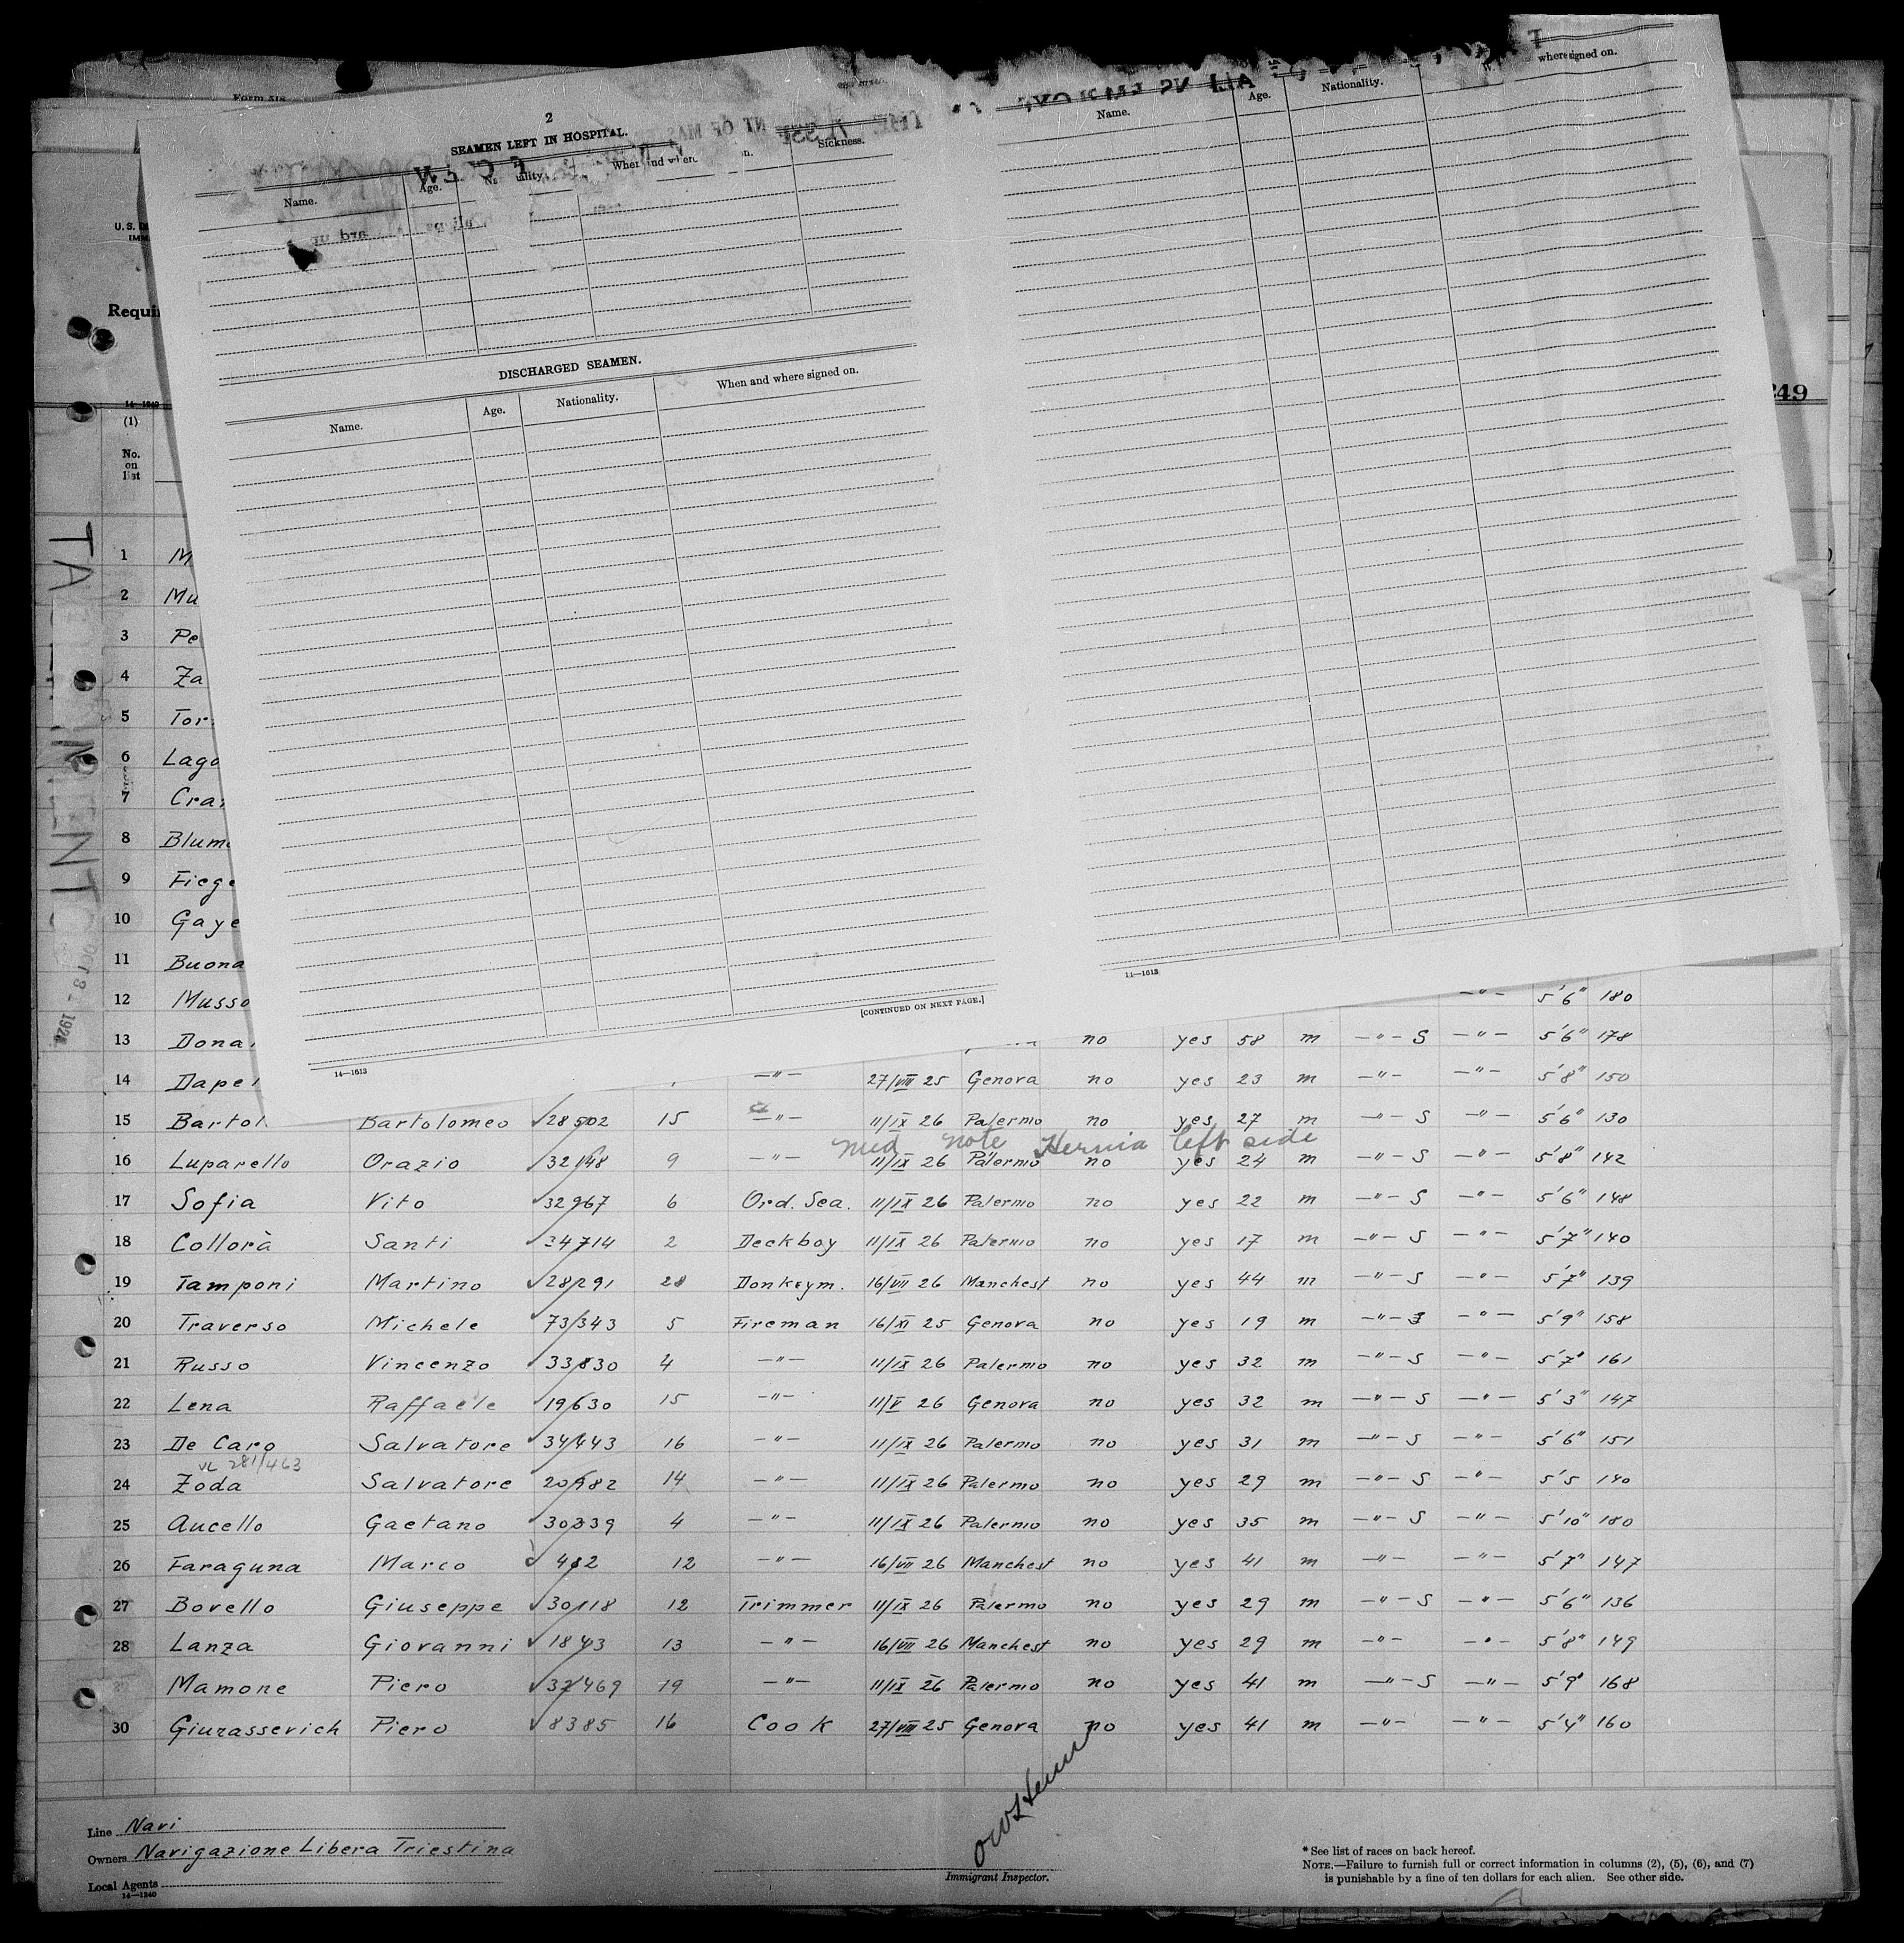 Form 518
2
SEAMEN LEFT IN HOSPITAL.
Name. Age. Nationality. When and where Sickness.
DISCHARGED SEAMEN.
Name. Age. Nationality. When and where signed on.
[CONTINUED ON NEXT PAGE.]
14—1613
Name. Age. Nationality. where signed on.
14—1613
U. S.
Requi
249
14—1240
(1)
No. on list
1 M
2 Mu
3 Pe
4 Za
5 Tor
6 Lago
7 Cra
8 Blum
9 Fiege
10 Gaye
11 Buona
12 Musso —"— 5'6" 180
13 Dona no yes 58 m —"— S —"— 5'6" 178
14 Dape —"— 27/VIII 25 Genova no yes 23 m —"— —"— 5'8" 150
15 Bartol Bartolomeo 28502 15 —"— 11/IX 26 Palermo no yes 27 m —"— S —"— 5'6" 130
med note Hernia left side
16 Luparello Orazio 32148 9 —"— 11/IX 26 Palermo no yes 24 m —"— S —"— 5'8" 142
17 Sofia Vito 32967 6 Ord. Sea. 11/IX 26 Palermo no yes 22 m —"— S —"— 5'6" 148
18 Collorà Santi 34714 2 Deckboy 11/IX 26 Palermo no yes 17 m —"— S —"— 5'7" 140
19 Tamponi Martino 28291 28 Donkeym. 16/VII 26 Manchest no yes 44 m —"— S —"— 5'7" 139
20 Traverso Michele 73343 5 Fireman 16/XI 25 Genova no yes 19 m —"— S —"— 5'9" 158
21 Russo Vincenzo 33830 4 —"— 11/IX 26 Palermo no yes 32 m —"— S —"— 5'7" 161
22 Lena Raffaele 19630 15 —"— 11/V 26 Genova no yes 32 m —"— S —"— 5'3" 147
23 De Caro Salvatore 34443 16 —"— 11/IX 26 Palermo no yes 31 m —"— S —"— 5'6" 151
VL 281/463
24 Zoda Salvatore 20982 14 —"— 11/IX 26 Palermo no yes 29 m —"— S —"— 5'5 140
25 Aucello Gaetano 30339 4 —"— 11/IX 26 Palermo no yes 35 m —"— S —"— 5'10" 180
26 Faraguna Marco 412 12 —"— 16/VII 26 Manchest no yes 41 m —"— —"— 5'7" 147
27 Bovello Giuseppe 30118 12 Trimmer 11/IX 26 Palermo no yes 29 m —"— S —"— 5'6" 136
28 Lanza Giovanni 1843 13 —"— 16/VII 26 Manchest no yes 29 m —"— —"— 5'8" 149
Mamone Piero 32469 19 —"— 11/IX 26 Palermo no yes 41 m —"— S —"— 5'9" 168
30 Giurassevich Piero 8385 16 Cook 27/VIII 25 Genova no yes 41 m —"— —"— 5'4" 160
Line Navi
Owners Navigazione Libera Triestina
Local Agents
14—1240
Immigrant Inspector.
* See list of races on back hereof.
NOTE.—Failure to furnish full or correct information in columns (2), (5), (6), and (7)
is punishable by a fine of ten dollars for each alien. See other side.